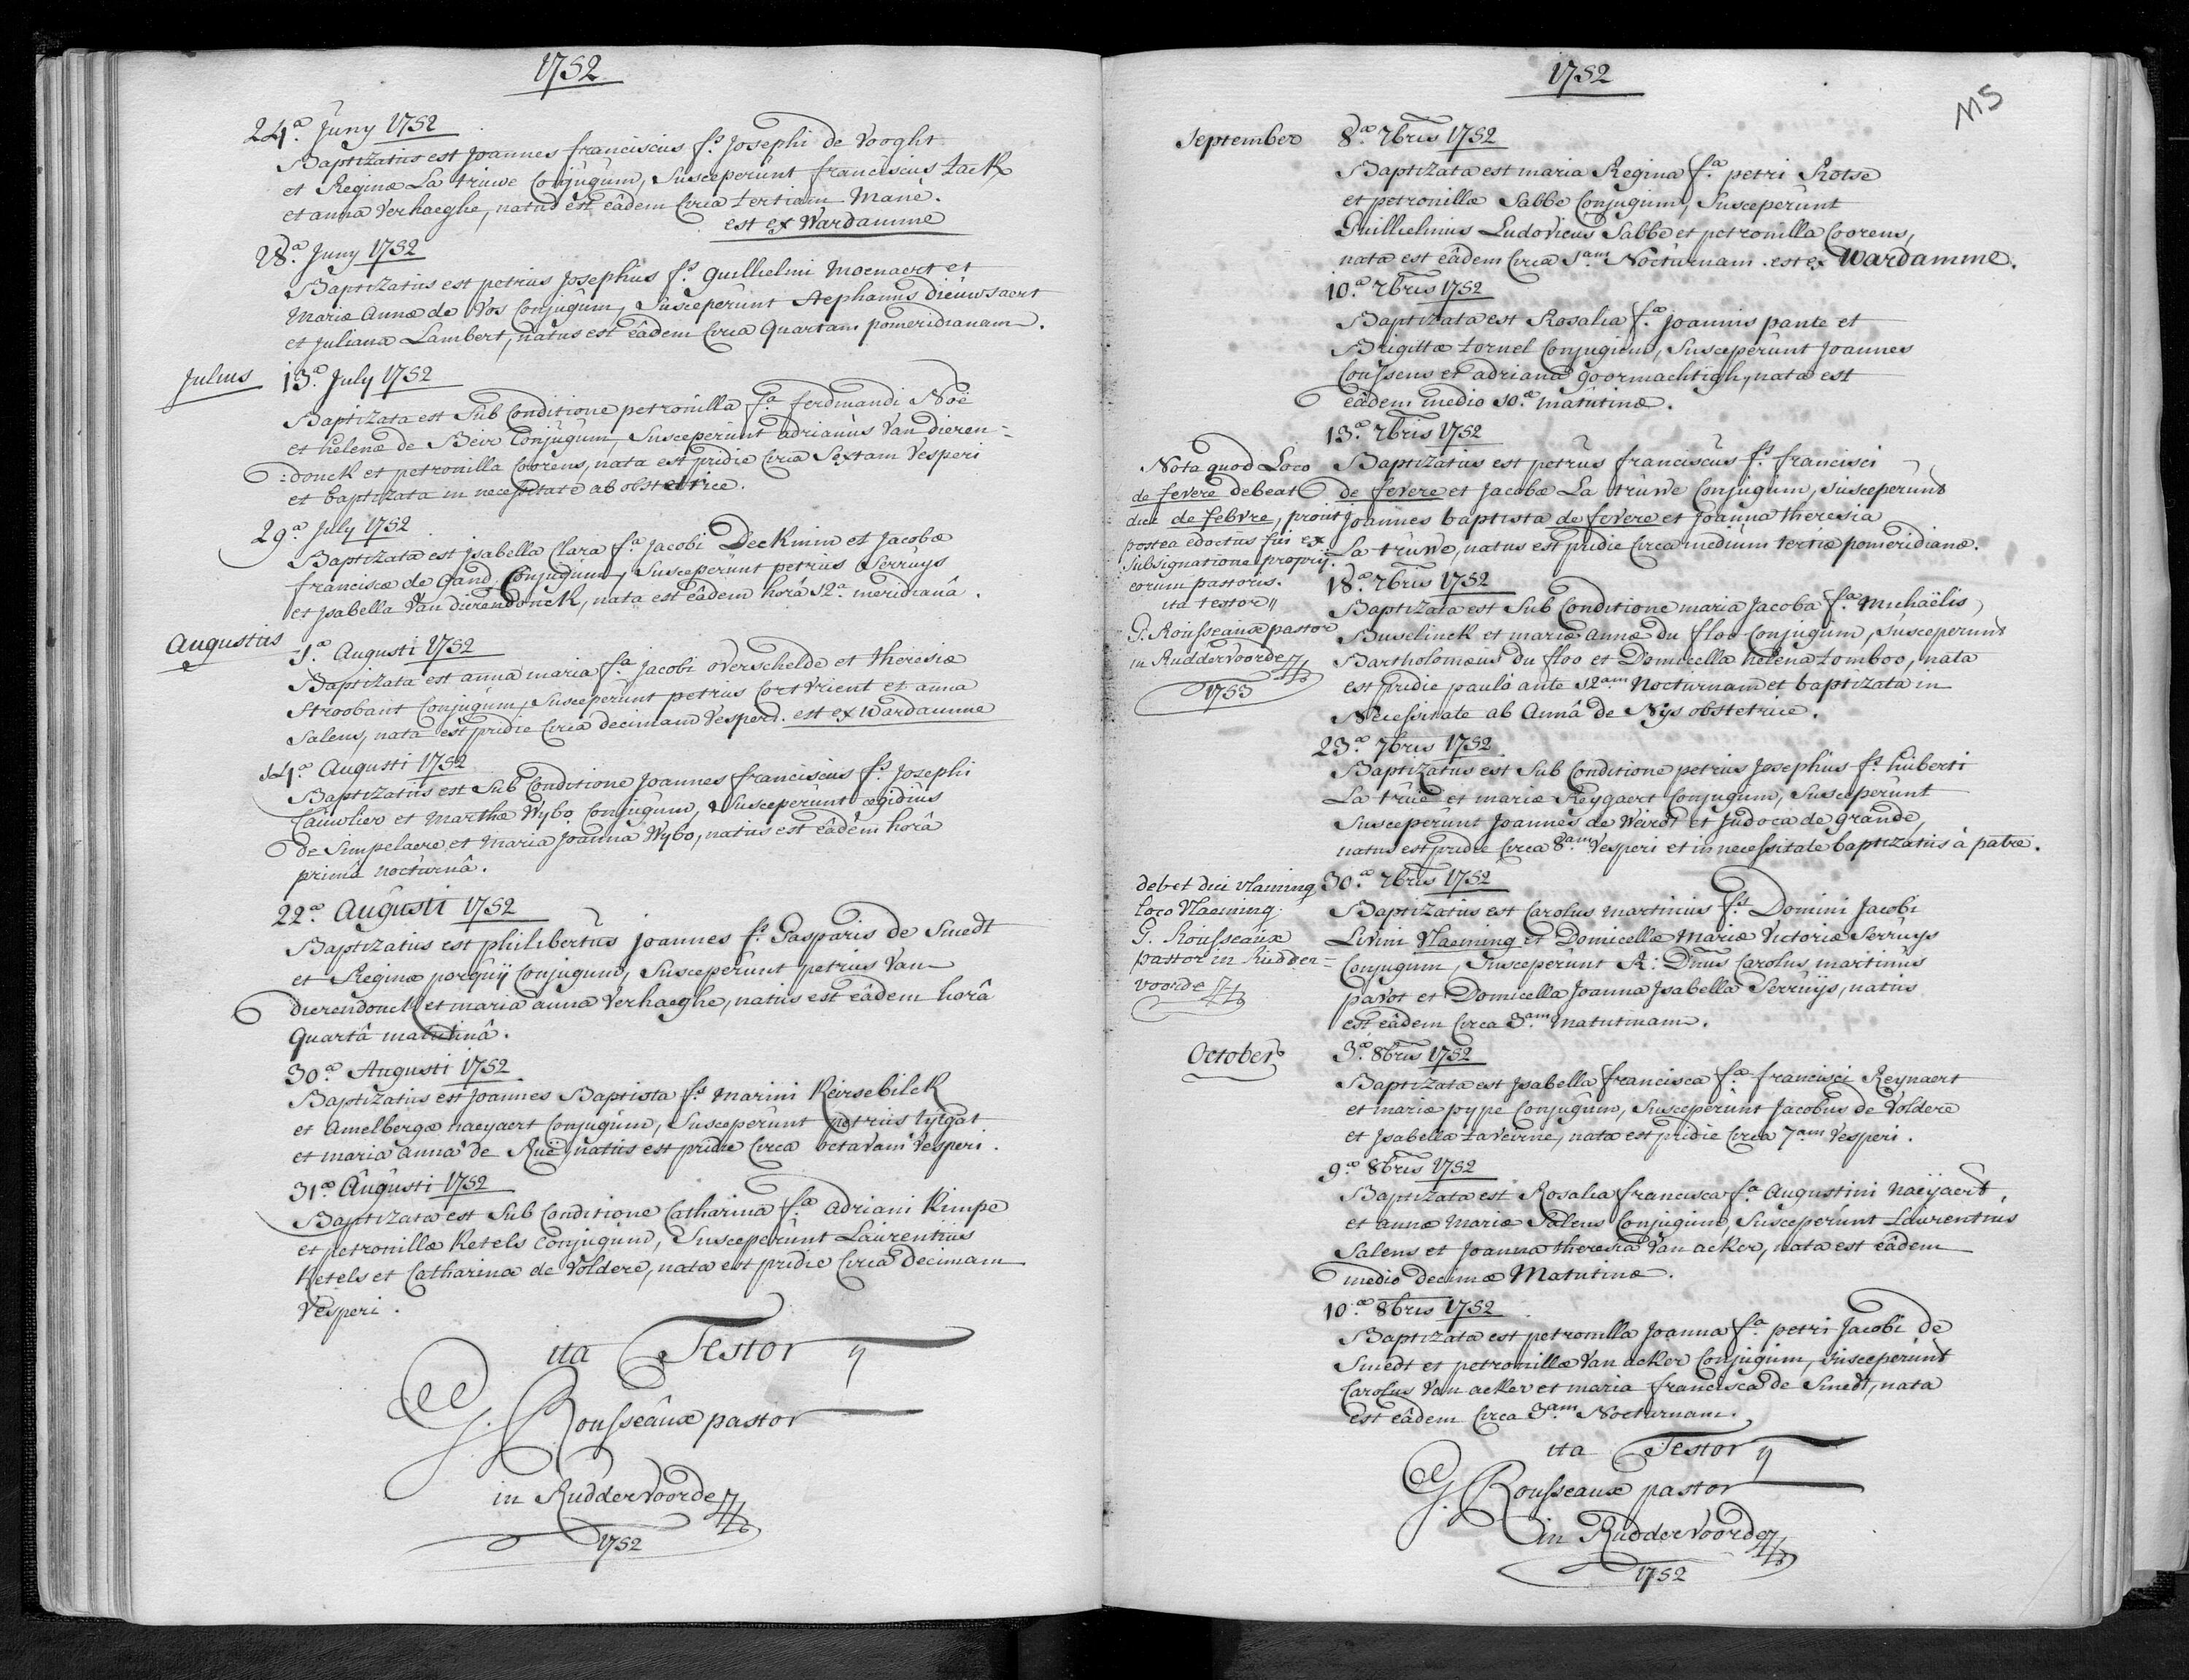 1752
24.a Juny 1752
Baptizatus est Joannes franciscus f.s Josephi de Vooght
et Reginæ La truwe Conjugum, Susceperunt franciscus tack
et anna Verhaeghe, natus est eâdem Circa tertiam Mane.
est ex Wardamme
28.a Juny 1752
Baptizatus est petrus Josephus f.s guillielmi Moenaert et
Mariæ Annæ de Vos Conjugum, Susceperunt Stephanus dieuwsaert
et Juliana Lambert, natus est eâdem Circa Quartam pomeridianam.
Julius
13.a July 1752
Baptizata est Sub Conditione petronilla f.a ferdinandi Noë
et helenæ de Beir Conjugum, Susceperunt adrianus Van dieren=
:donck et petronilla Coorens, nata est pridie Circa Sextam Vesperi
et baptizata in necessitate ab obstetrice.
29.a July 1752
Baptizata est Isabella Clara f.a Jacobi Deekmin et Jacobæ
franciscæ de gand Conjugum, Susceperunt petrus Serruys
et Isabella Van dierendonck, nata est eâdem horâ 12.a meridianâ.
Augustus
1.a Augusti 1752
Baptizata est anna maria f.a Jacobi overschelde et theresiæ
Stroobant Conjugum, Susceperunt petrus Cortvrient et anna
Salens, nata est pridie Circa decimam Vesperi. est ex Wardamme
14.a Augusti 1752
Baptizatus est Sub Conditione Joannes franciscus f.s Josephi
Cauwlier et Marthæ Wybo Conjugum, Susceperunt ægidius
de Simpelaere et Maria Joanna Wybo, natus est eâdem horâ
primâ nocturnâ.
22.a Augusti 1752
Baptizatus est philibertus joannes f.s Gasparis de Smedt
et Reginæ porquij Conjugum, Susceperunt petrus Van
dierendonck et maria anna Verhaeghe, natus est eâdem horâ
Quartâ matutinâ.
30.a Augusti 1752
Baptizatus est Joannes Baptista f.s Marini Keirsebilck
et Amelbergæ naeyaert Conjugum, Susceperunt petrus tytgat
et maria anna de Rue, natus est pridie Circa octavam Vesperi.
31.a Augusti 1752
Baptizata est Sub Conditione Catharina f.a Adriani Kimpe
et petronillæ Ketels Conjugum, Susceperunt Laurentius
Ketels et Catharina de Voldere, nata est pridie Circa decimam
Vesperi.
ita Testor
G. Rousseaux pastor
in Ruddervoorde
1752
1752
115
September
8.a 7bris 1752
Baptizata est maria Regina f.a petri Rotse
et petronillæ Sabbe Conjugum, Susceperunt
Guillielmus Ludovicus Sabbe et petronilla Coorens,
nata est eâdem Circa 1.am Nocturnam. est ex Wardamme.
10.a 7bris 1752
Baptizata est Rosalia f.a Joannis pante et
Brigittæ tornel Conjugum, Susceperunt Joannes
Coussens et adriana goormachtigh, nata est
eâdem medio 10.æ matutinæ.
13.a 7bris 1752
Baptizatus est petrus franciscus f.s francisci
de fevere et Jacobæ La truwe Conjugum, Susceperunt
Joannes baptista de fevere et Joanna theresia
La truwe, natus est pridie Circa medium tertiæ pomeridianæ.
Nota quod Loco
de fevere debeat
dici de febvre, prout
postea edoctus fui ex
Subsignatione proprij
eorum pastoris.
ita testor
G. Rousseaux pastor
in Ruddervoorde
1753
18.a 7bris 1752
Baptizata est Sub Conditione maria Jacoba f.a Michaëlis
Buselinck et mariæ annæ du floo Conjugum, Susceperunt
Bartholomæus du floo et Domicella helena tomboo, nata
est pridie paulò ante 12.am Nocturnam et baptizata in
Necessitate ab Annâ de Nys obstetrice.
23.a 7bris 1752
Baptizatus est Sub Conditione petrus Josephus f.s huberti
La true et mariæ Reygaert Conjugum, Susceperunt
Susceperunt Joannes de Weirdt et Judoca de grande,
natus est pridie Circa 8.am Vesperi et in necessitate baptizatus à patre.
30.a 7bris 1752
Baptizatus est Carolus martinus f.s Domini Jacobi
Livini Vlaeming et Domicellæ Mariæ Victoriæ Serruys
Conjugum, Susceperunt R: Dnus Carolus martinus
pavot et Domicella Joanna Isabella Serruijs, natus
est eâdem Circa 3.am Matutinam.
debet dici vlaming
loco Vlaeming.
G. Rousseaux
pastor in Rudder=
voorde
October
3.a 8bris 1752
Baptizata est Isabella francisca f.a francisci Reynaert
et mariæ pype Conjugum, Susceperunt Jacobus de Voldere
et Isabella taveirne, nata est pridie Circa 7.am Vesperi.
9.a 8bris 1752
Baptizata est Rosalia francisca f.a Augustini naeijaert,
et annæ Mariæ Salens Conjugum, Susceperunt Laurentius
Salens et Joanna theresia Van acker, nata est eâdem
medio decimæ Matutinæ.
10.a 8bris 1752
Baptizata est petronilla Joanna f.a petri Jacobi de
Smedt et petronillæ Van acker Conjugum, Susceperunt
Carolus Van acker et maria francisca de Smedt, nata
est eâdem Circa 3.am Nocturnam.
ita Testor
G. Rousseaux pastor
in Ruddervoorde
1752